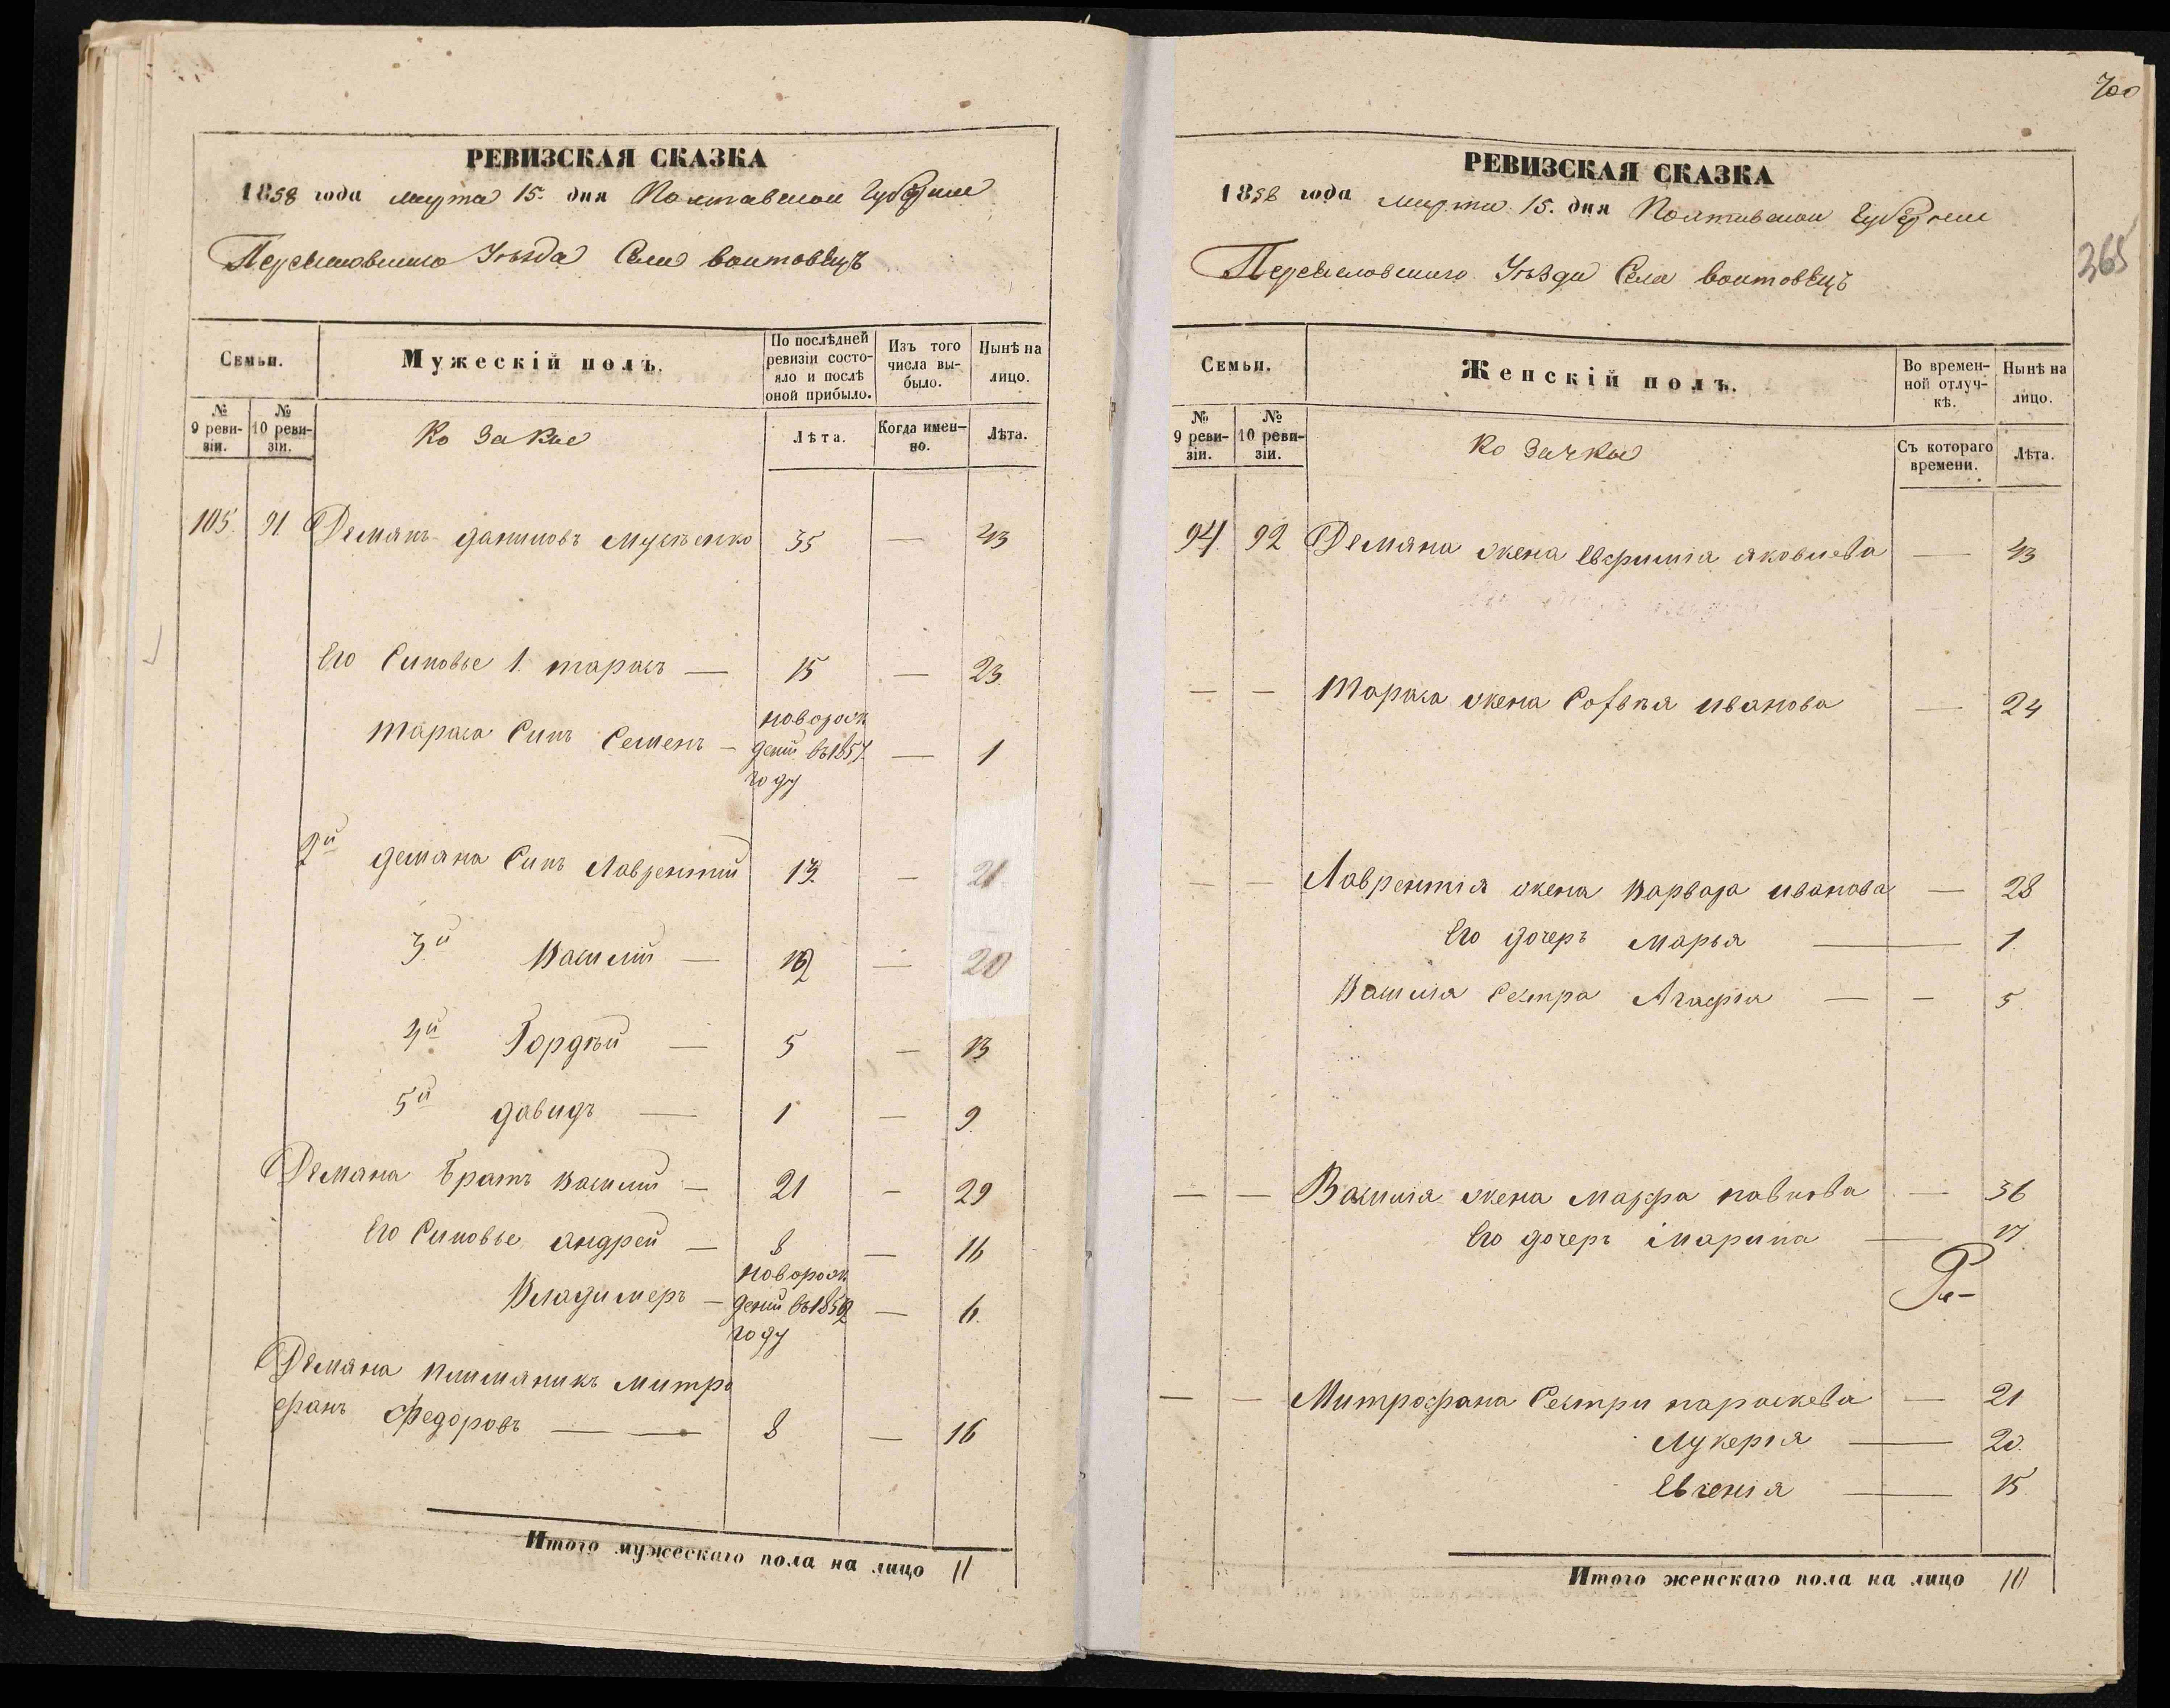 РЕВИЗСКАЯ СКАЗКА
1858 года марта 15. дня Полтавской Губерніи
Переясловскаго Уѣзда Села воитовецъ
Семьи.
Мужескій полъ.
По послѣдней ревизіи состо-
яло и послѣ оной прибыло.
Изъ того числа вы-
было.
Нынѣ на лицо.
№ 9 реви-
зіи.
№ 10 реви-
зіи.
Козаки
Лѣта.
Когда имен-
но.
Лѣта.
105. 91 Демянъ даниловъ мусѣенко 35 — 43
Его Синовье 1. тарасъ — 15 — 23.
тараса Синъ Семенъ — новорож
деній въ 1857. — 1
году
2й демяна Синъ Лаврентій 13. — 21
3й Василій — 12 — 20
4й Гордѣй — 5 — 13
5й давидъ — 1 — 9.
Демяна братъ Василій — 21 — 29
Его Синовье андрей — 8 — 16
Владимеръ — новорож
деній въ 1852 — 6.
году
Демяна племяникъ митро
фанъ федоровъ — — 8 — 16
Итого мужескаго пола на лицо 11
700
365
РЕВИЗСКАЯ СКАЗКА
1858 года марта 15. дня Полтавской Губерніи
Переясловскаго Уѣзда Села воитовецъ
Семьи.
Женскій полъ.
Во времен-
ной отлуч-
кѣ.
Нынѣ на лицо.
№ 9 реви-
зіи.
№ 10 реви-
зіи.
Козачки
Съ котораго времени.
Лѣта.
94. 92 Демяна жена евфимія яковлева — 43
— — Тараса жена Софѣя иванова — 24
— — Лаврентія жена варвара иванова — 28
Его дочеръ марья — 1.
Василія Сестра Агафія — — 5.
— — Василія жена марфа павлова — 36
Его дочеръ марина — 17.
— — Митрофана Сестри параскева — 21
Лукерія — 20.
Евгенія — 15
Итого женскаго пола на лицо 10